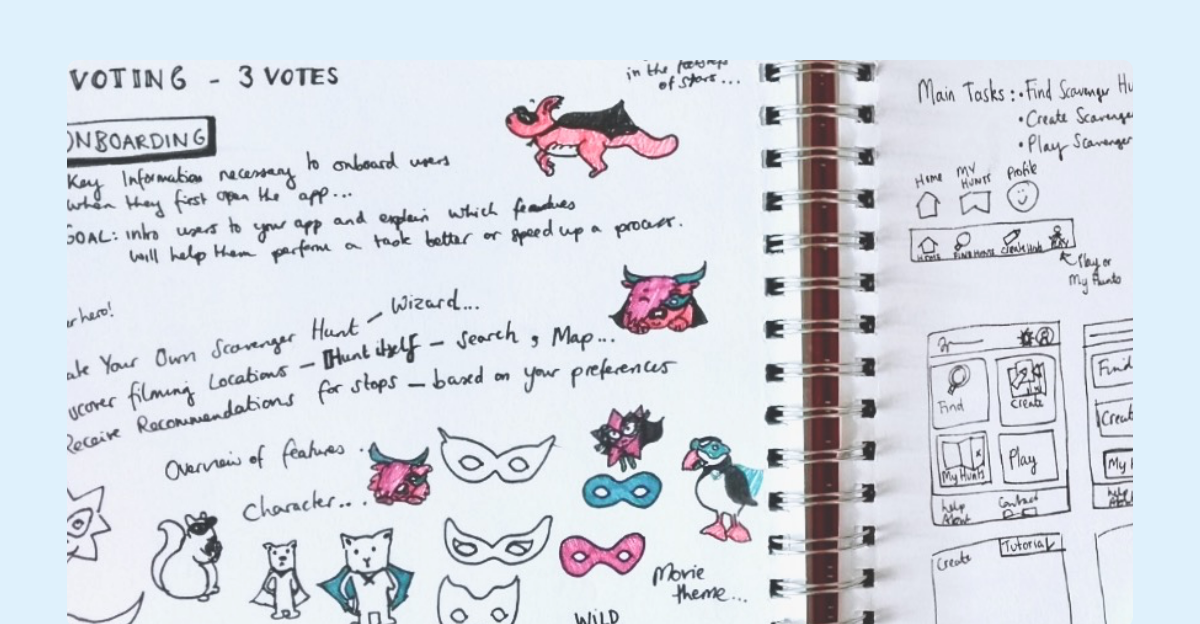 VOTING - 3 VOTES
in the footsteps
of stars...
ONBOARDING
Key Information necessary to onboard users
when they first open the app...
GOAL: intro users to your app and explain which features
will help them perform a task better or speed up a process.
erhero!
ate Your Own Scavenger Hunt - Wizard...
scover filming Locations - Hunt itself - search, Map...
Receive Recommendations for stops - based on your preferences
Overview of features
Character...
Movie
theme...
WILD
Main Tasks: • Find Scavenger Hu
• Create Scavenger
• Play Scavenger
Home
My
Hunts
Profile
Home
Find Hunts
Create Hunt
Play or
My Hunts
Find
Create
My Hunts
Play
help
About
Contact
Find
Create
My H
help
About
Create
Tutorial